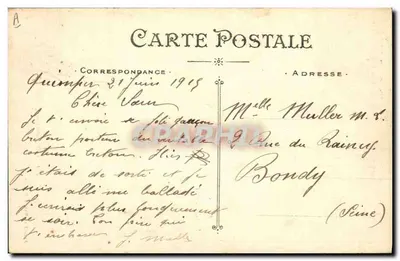 CARTE POSTALE
CORRESPONDANCE
ADRESSE
Quimper 21 Juin 1915
Chère Sœur
Je t'envoie ce joli garçon
breton porteur du véritable
costume breton. Hier
j'étais de sorti et je
suis allé me balladé
J'écrirais plus longuement
ce soir. Ton frère qui
t'embrasse J. Muller
Melle Muller M. L.
2 Rue du Raincy
Bondy
(Seine)